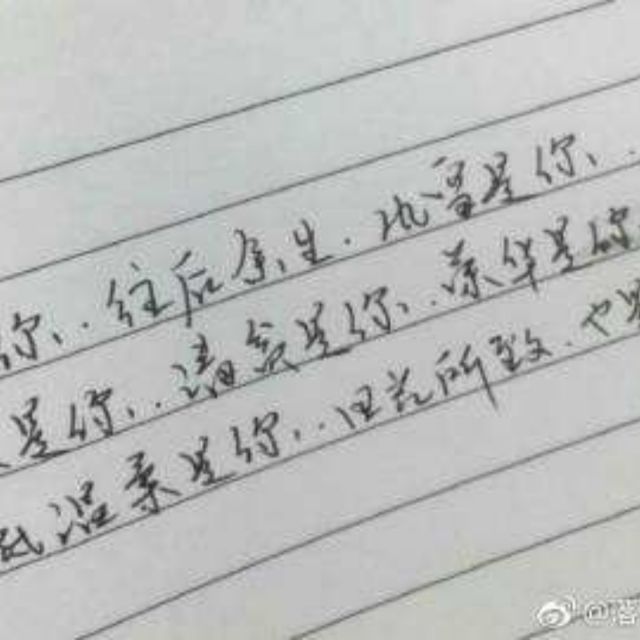 你，往后余生，风雪是你，
是你，清贫是你，荣华是你
低温柔是你，目光所致，也是
@